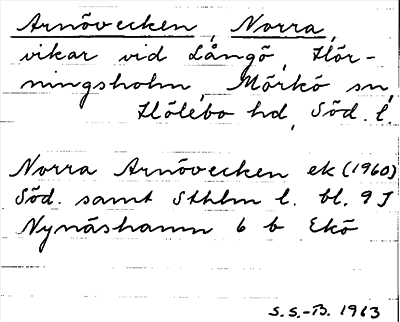 Arnövecken, Norra,
vikar vid Långö, Hör-
ningsholm, Mörkö sn,
Hölebo hd, Söd. l.
Norra Arnövecken ek (1960)
Söd. samt Sthlm l. bl. 9 J
Nynäshamn 6 b Ekö
S.S.-B. 1963